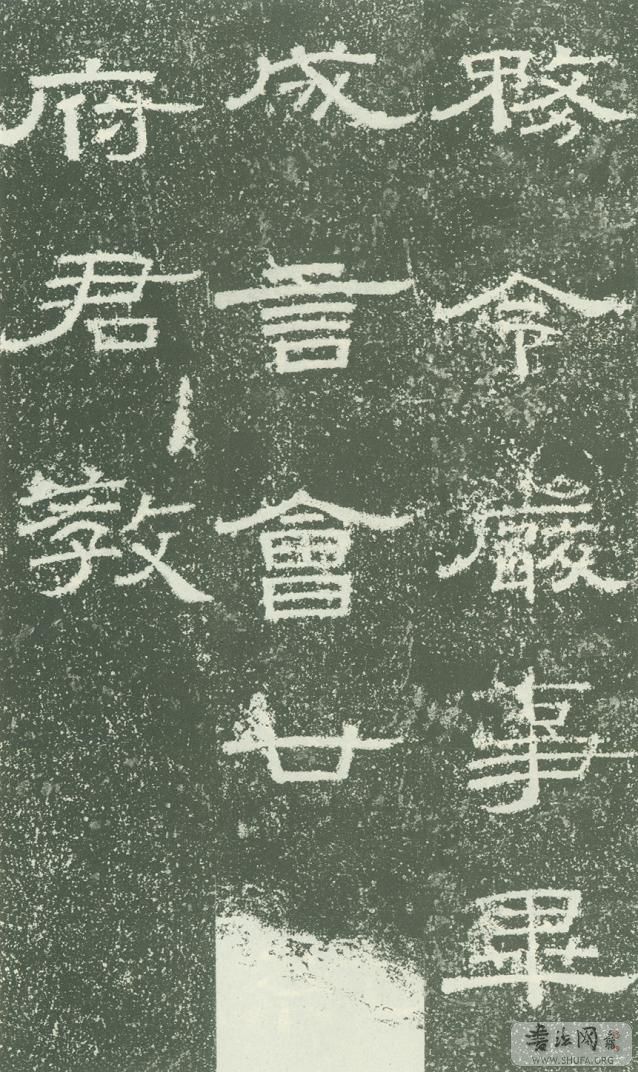 務令嚴事畢
成言會廿
府君教
書法网
WWW.SHUFA.ORG